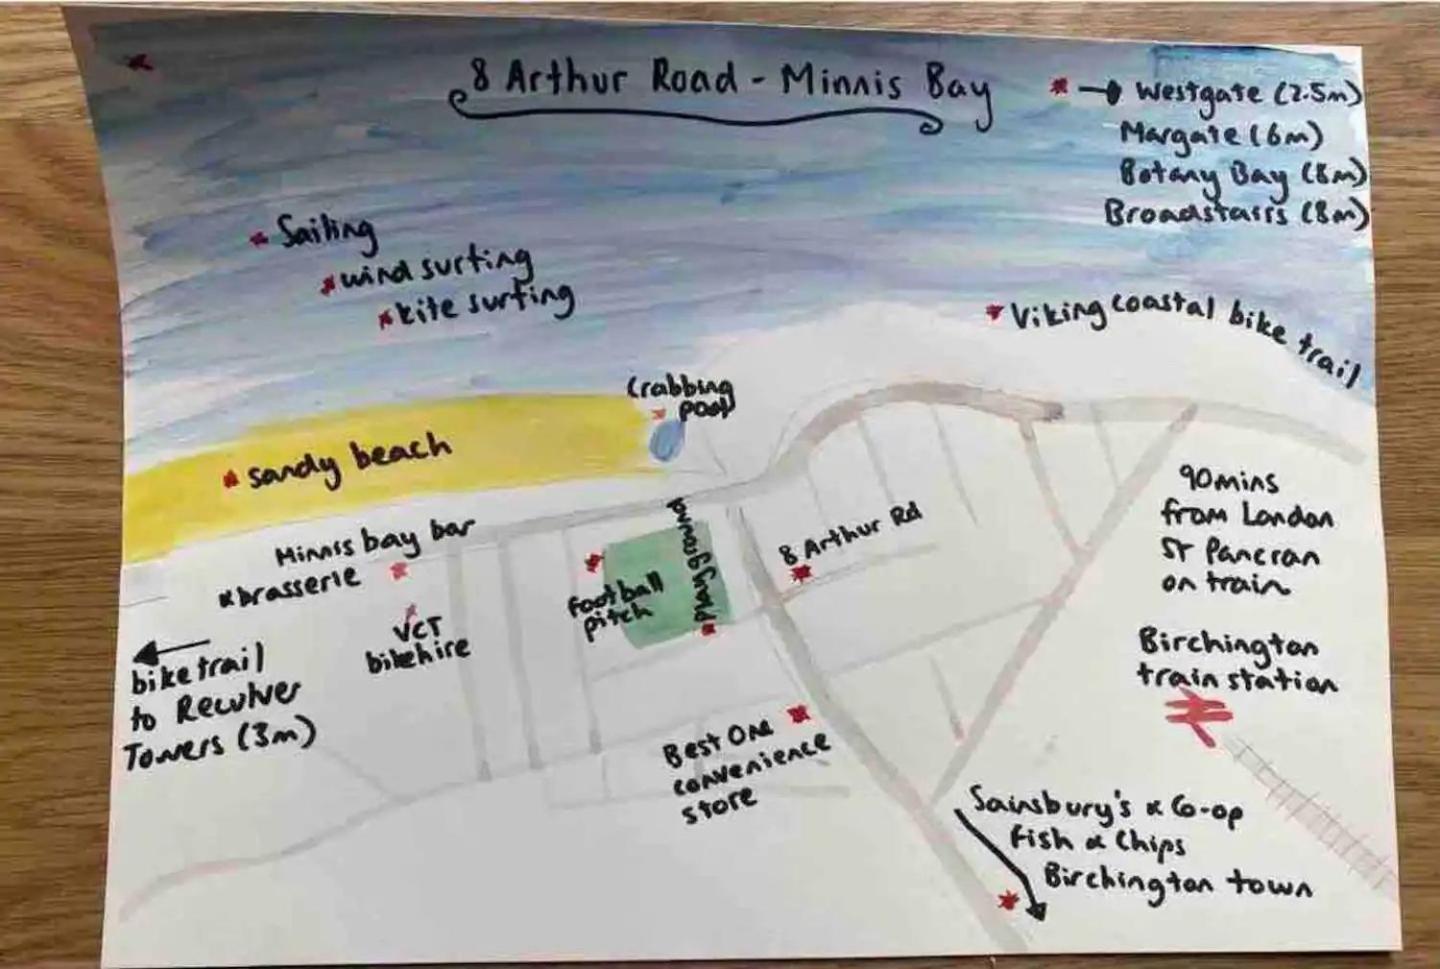 8 Arthur Road - Minnis Bay
→ Westgate (2.5m)
Margate (6m)
Botany Bay (8m)
Broadstairs (8m)
Sailing
wind surfing
kite surfing
Viking coastal bike trail
Crabbing
pool
sandy beach
Minnis bay bar
& brasserie
VCT
bikehire
football
pitch
Playground
8 Arthur Rd
90mins
from London
St Pancran
on train
Birchington
train station
bike trail
to Reculver
Towers (3m)
Best One
convenience
store
Sainsbury's & Co-op
Fish & Chips
Birchington town